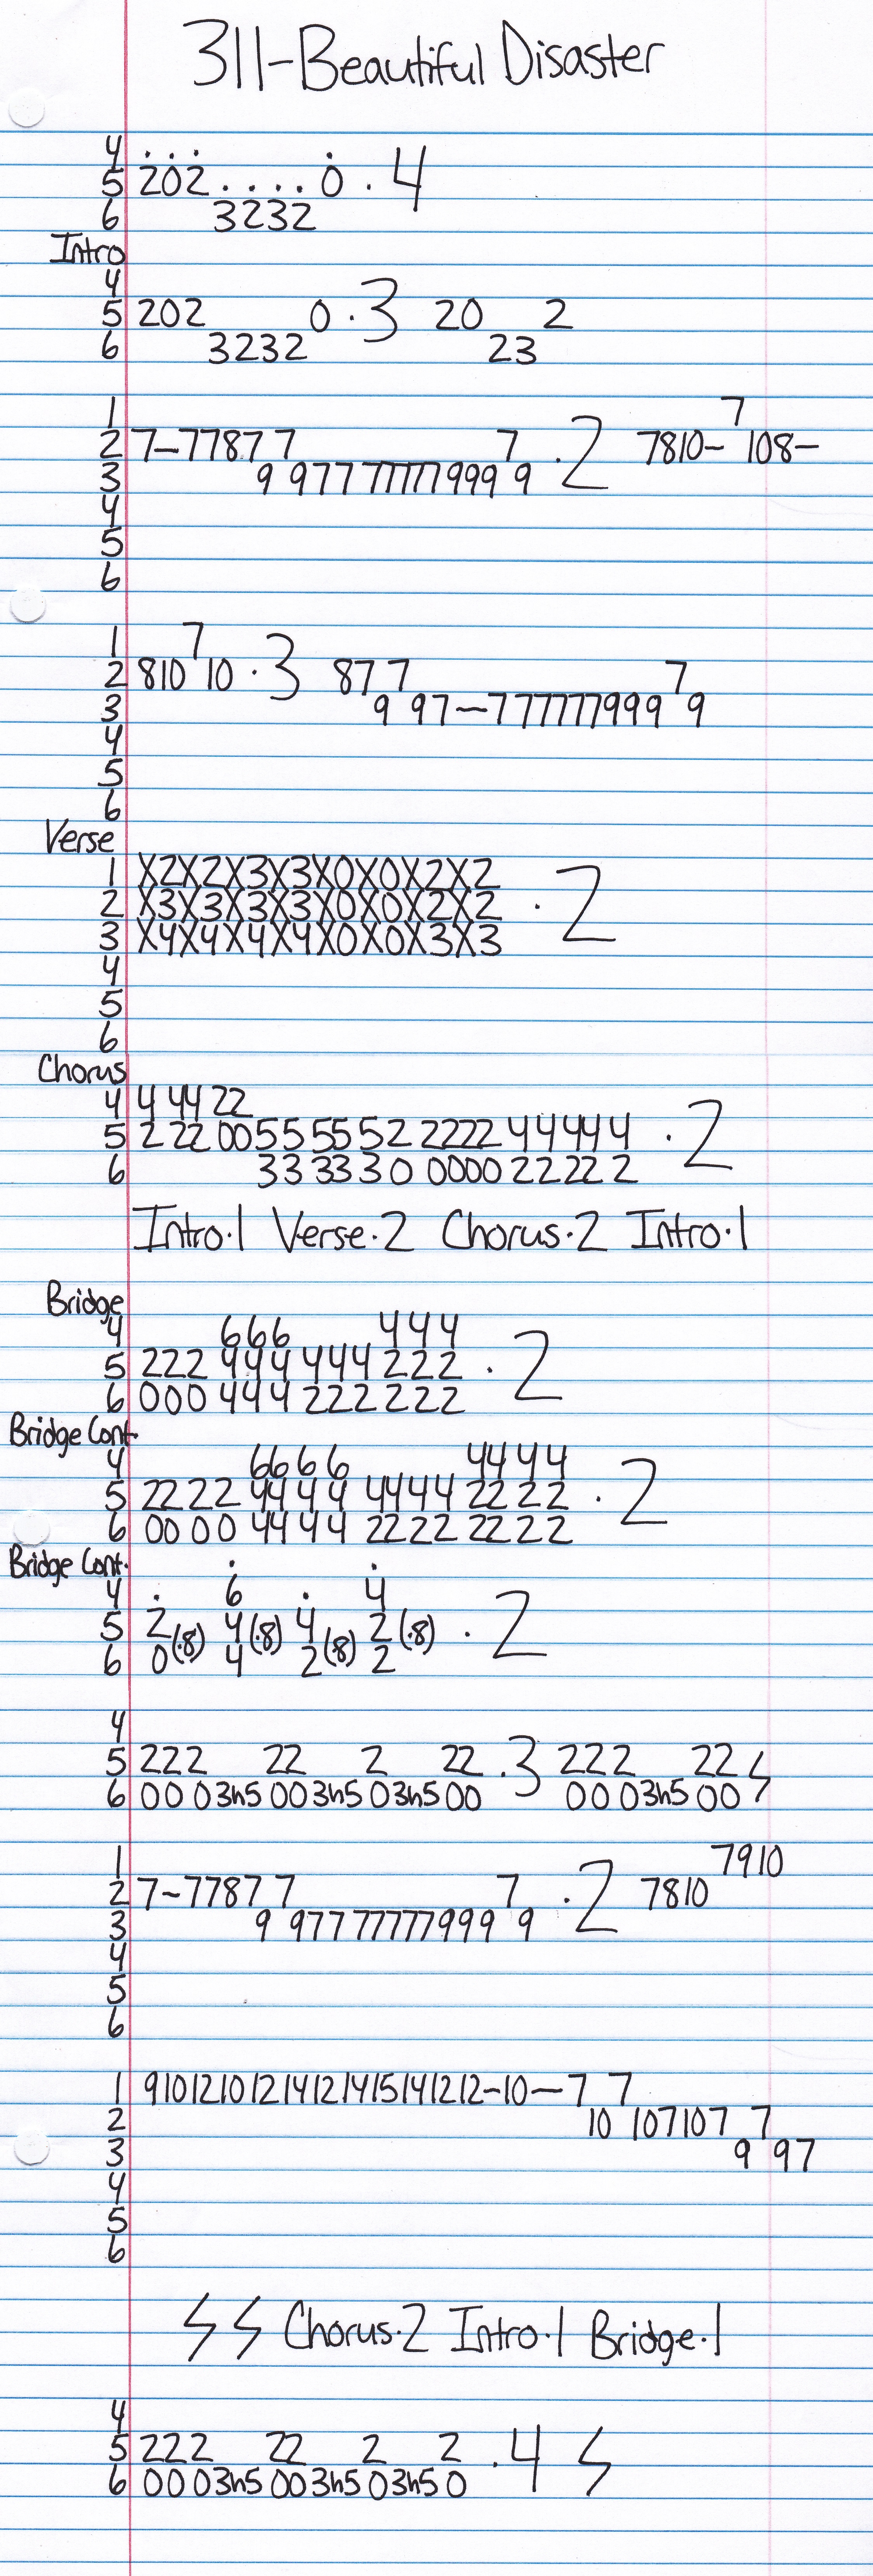 311-Beautiful Disaster
4 . . .
5 202 . . . . 0 . 4
6 3232
Intro
4
5 202 0 . 3 20 2
6 3232 23
1 7
2 7-7787 7 7 . 2 7810- 108-
3 9 977 777777999 9
4
5
6
1 7
2 810 10 . 3 87 7 7
3 9 97-7 777777999 9
4
5
6
Verse
1 X2X2X3X3X0X0X2X2
2 X3X3X3X3X0X0X2X2 . 2
3 X4X4X4X4X0X0X3X3
4
5
6
Chorus
4 4 44 22
5 2 22 0055 55 52 2222 44444 . 2
6 33 33 30 0000 22222
Intro.1 Verse.2 Chorus.2 Intro.1
Bridge
4 666 444
5 222 444 444 222 . 2
6 000 444 222 222
Bridge Cont.
4 6666 4444
5 2222 4444 4444 2222 . 2
6 0000 4444 2222 2222
Bridge Cont.
4 . 6 . 4
5 2 4 4 2 . 2
6 0(.8) 4(.8) 2(.8) 2(.8)
4
5 222 22 2 22 .3 222 22
6 00 03h5 003h5 03h5 00 00 03h5 00
1 7910
2 7-7787 7 7 . 2 7810
3 9 977 777777999 9
4
5
6
1 91012101214121415141212-10-7 7
2 10 107107 7
3 9 97
4
5
6
Chorus.2 Intro.1 Bridge.1
4
5 222 22 2 2 .4
6 00 03h5 003h5 03h5 0